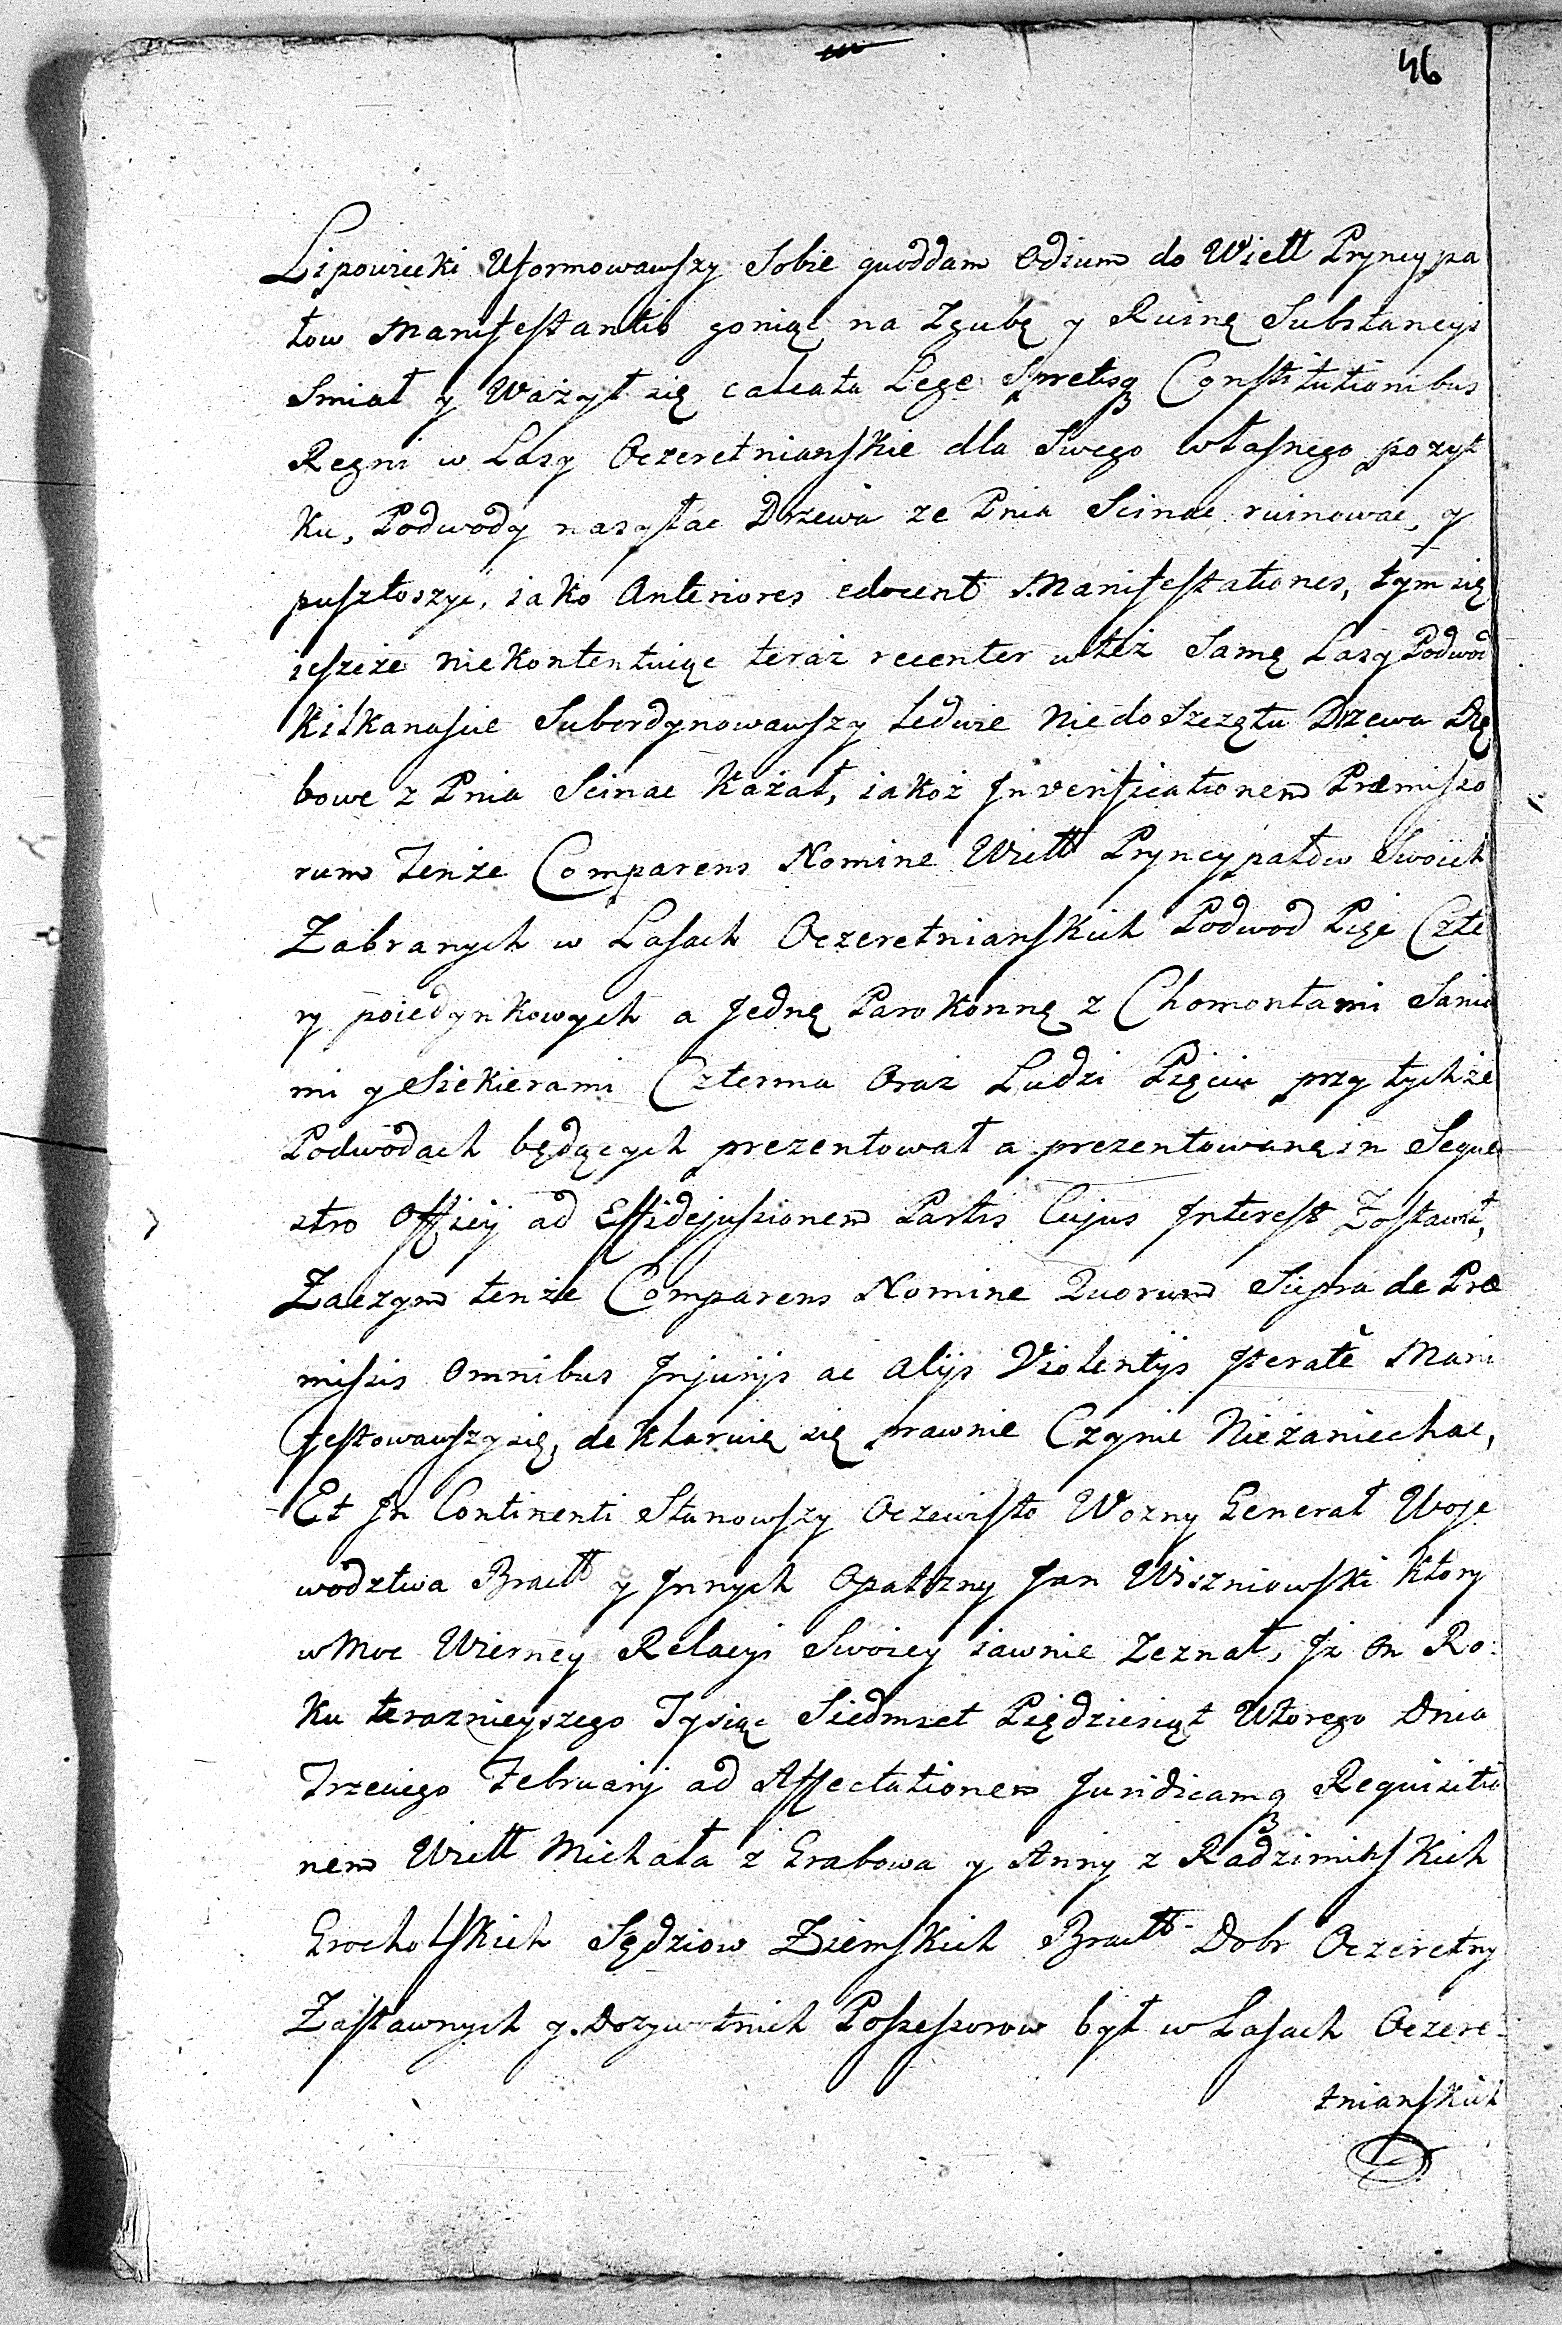 46
Lipowiecki Uformowawszy Sobie quoddam Odium do Wiell Pryncypa
łow Manifestantis goniąc na Zgubę y Ruinę Substancyi
Smiał y Ważył się calcata Lege Spretisq Constitutionibus
Regni w Lasy Oczeretnianskie dla Swego własnego pozyt
ku, Podwody nasyłac Drzewa ze Pnia Scinac ruinowac, y
pustoszyc, iako Anteriores edocent Manifestationes, tym się
ieszcze niekontentuiąc teraz recenter w też Samę Lasy Podwod
Kilkanascie Subordynowawszy Ledwie Niedoszczętu Drzewa Dę
bowe z Pnia Scinac Kazał, iakoż In verificationem Præmisso
rum Tenże Comparens Nomine Wiell Pryncypałow Swoich
Zabranych w Lasach Oczeretnianskich Podwod Pięc Czte
ry poiedynkowych a Jednę Parokonną z Chomontami Sania
mi y Siekierami Czterma Oraz Ludzi Pięciu przy tychże
Podwodach będących prezentował a prezentowanę in Seque
stro Officij ad Effidejussionem Partis Cujus Interest Zostawił,
Zaczym tenże Comparens Nomine Quorum Supra de Præ
missis Omnibus Injurijs ac alijs Violentijs Iterate Mani
festowawszysię, deklaruię się prawnie Czynic Nieżaniechac,
Et In Continenti Stanowszy Oczewisto Wozny Generał Woje
wodztwa Bracll y Innych Opatrzny Jan Wiszniowski Ktory
w Moc Wierney Relacyi Swoiey iawnie Zeznał, Iż On Ro:
ku teraznieyszego Tysiąc Siedmset Piędziesiąt Wtorego Dnia
Trzeciego Februarij ad Affectationem Juridicamq Requisitio
nem Wiell Michała z Grabowa y Anny z Radziminskich
Grocholskich Sędziow Ziemskich Bracll Dobr Oczeretny
Zastawnych y Dozywotnich Possessorow był w Lasach Oczere:
tnianskich